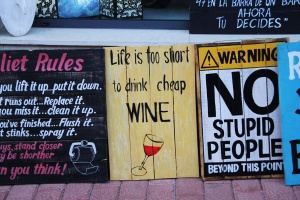 47 EN LA BARRA DE UN BAR
AHORA
TU DECIDES"
ilet Rules
ou lift it up..put it down.
t runs out...Replace it.
ou miss it...clean it up.
ou've finished...Flush it.
t stinks...spray it.
uys, stand closer
ay be shorther
an you think!
Life is too short
to drink cheap
WINE
WARNING
NO
STUPID
PEOPLE
BEYOND THIS POINT